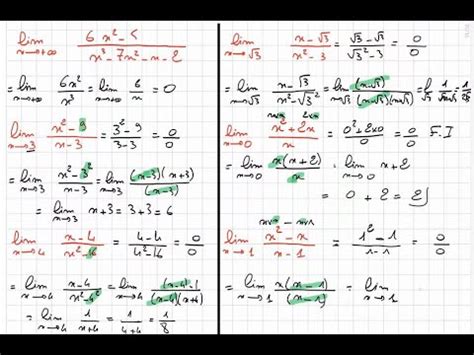 lim x→+∞ (6x²-5)/(x³-7x²-x-2)
= lim x→+∞ 6x²/x³ = lim x→+∞ 6/x = 0
lim x→3 (x²-9)/(x-3) = (3²-9)/(3-3) = 0/0
= lim x→3 (x²-3²)/(x-3) = lim x→3 (x-3)(x+3)/(x-3)
= lim x→3 x+3 = 3+3 = 6
lim x→4 (x-4)/(x²-16) = (4-4)/(4²-16) = 0/0
= lim x→4 (x-4)/(x²-4²) = lim x→4 (x-4)·1/(x-4)(x+4)
= lim x→4 1/(x+4) = 1/(4+4) = 1/8
lim x→√3 (x-√3)/(x²-3) = (√3-√3)/(√3²-3) = 0/0
= lim x→√3 (x-√3)/(x²-√3²) = lim x→√3 (x-√3)/(x-√3)(x+√3)
lim x→0 (x²+2x)/x = (0²+2x0)/0 = 0/0 = F.I
= lim x→0 x(x+2)/x = lim x→0 x+2
= 0+2 = 2
lim x→1 (x²-x)/(x-1) = (1²-1)/(1-1) = 0/0
= lim x→1 x(x-1)/(x-1) = lim x→1